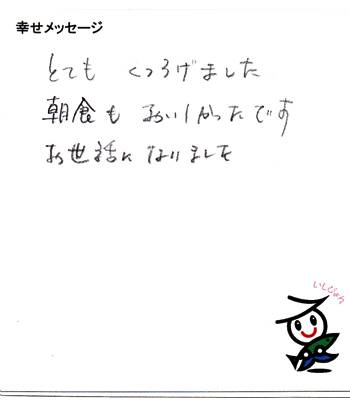 幸せメッセージ
とても くつろげました
朝食も おいしかったです
お世話になりました
いしぴょん